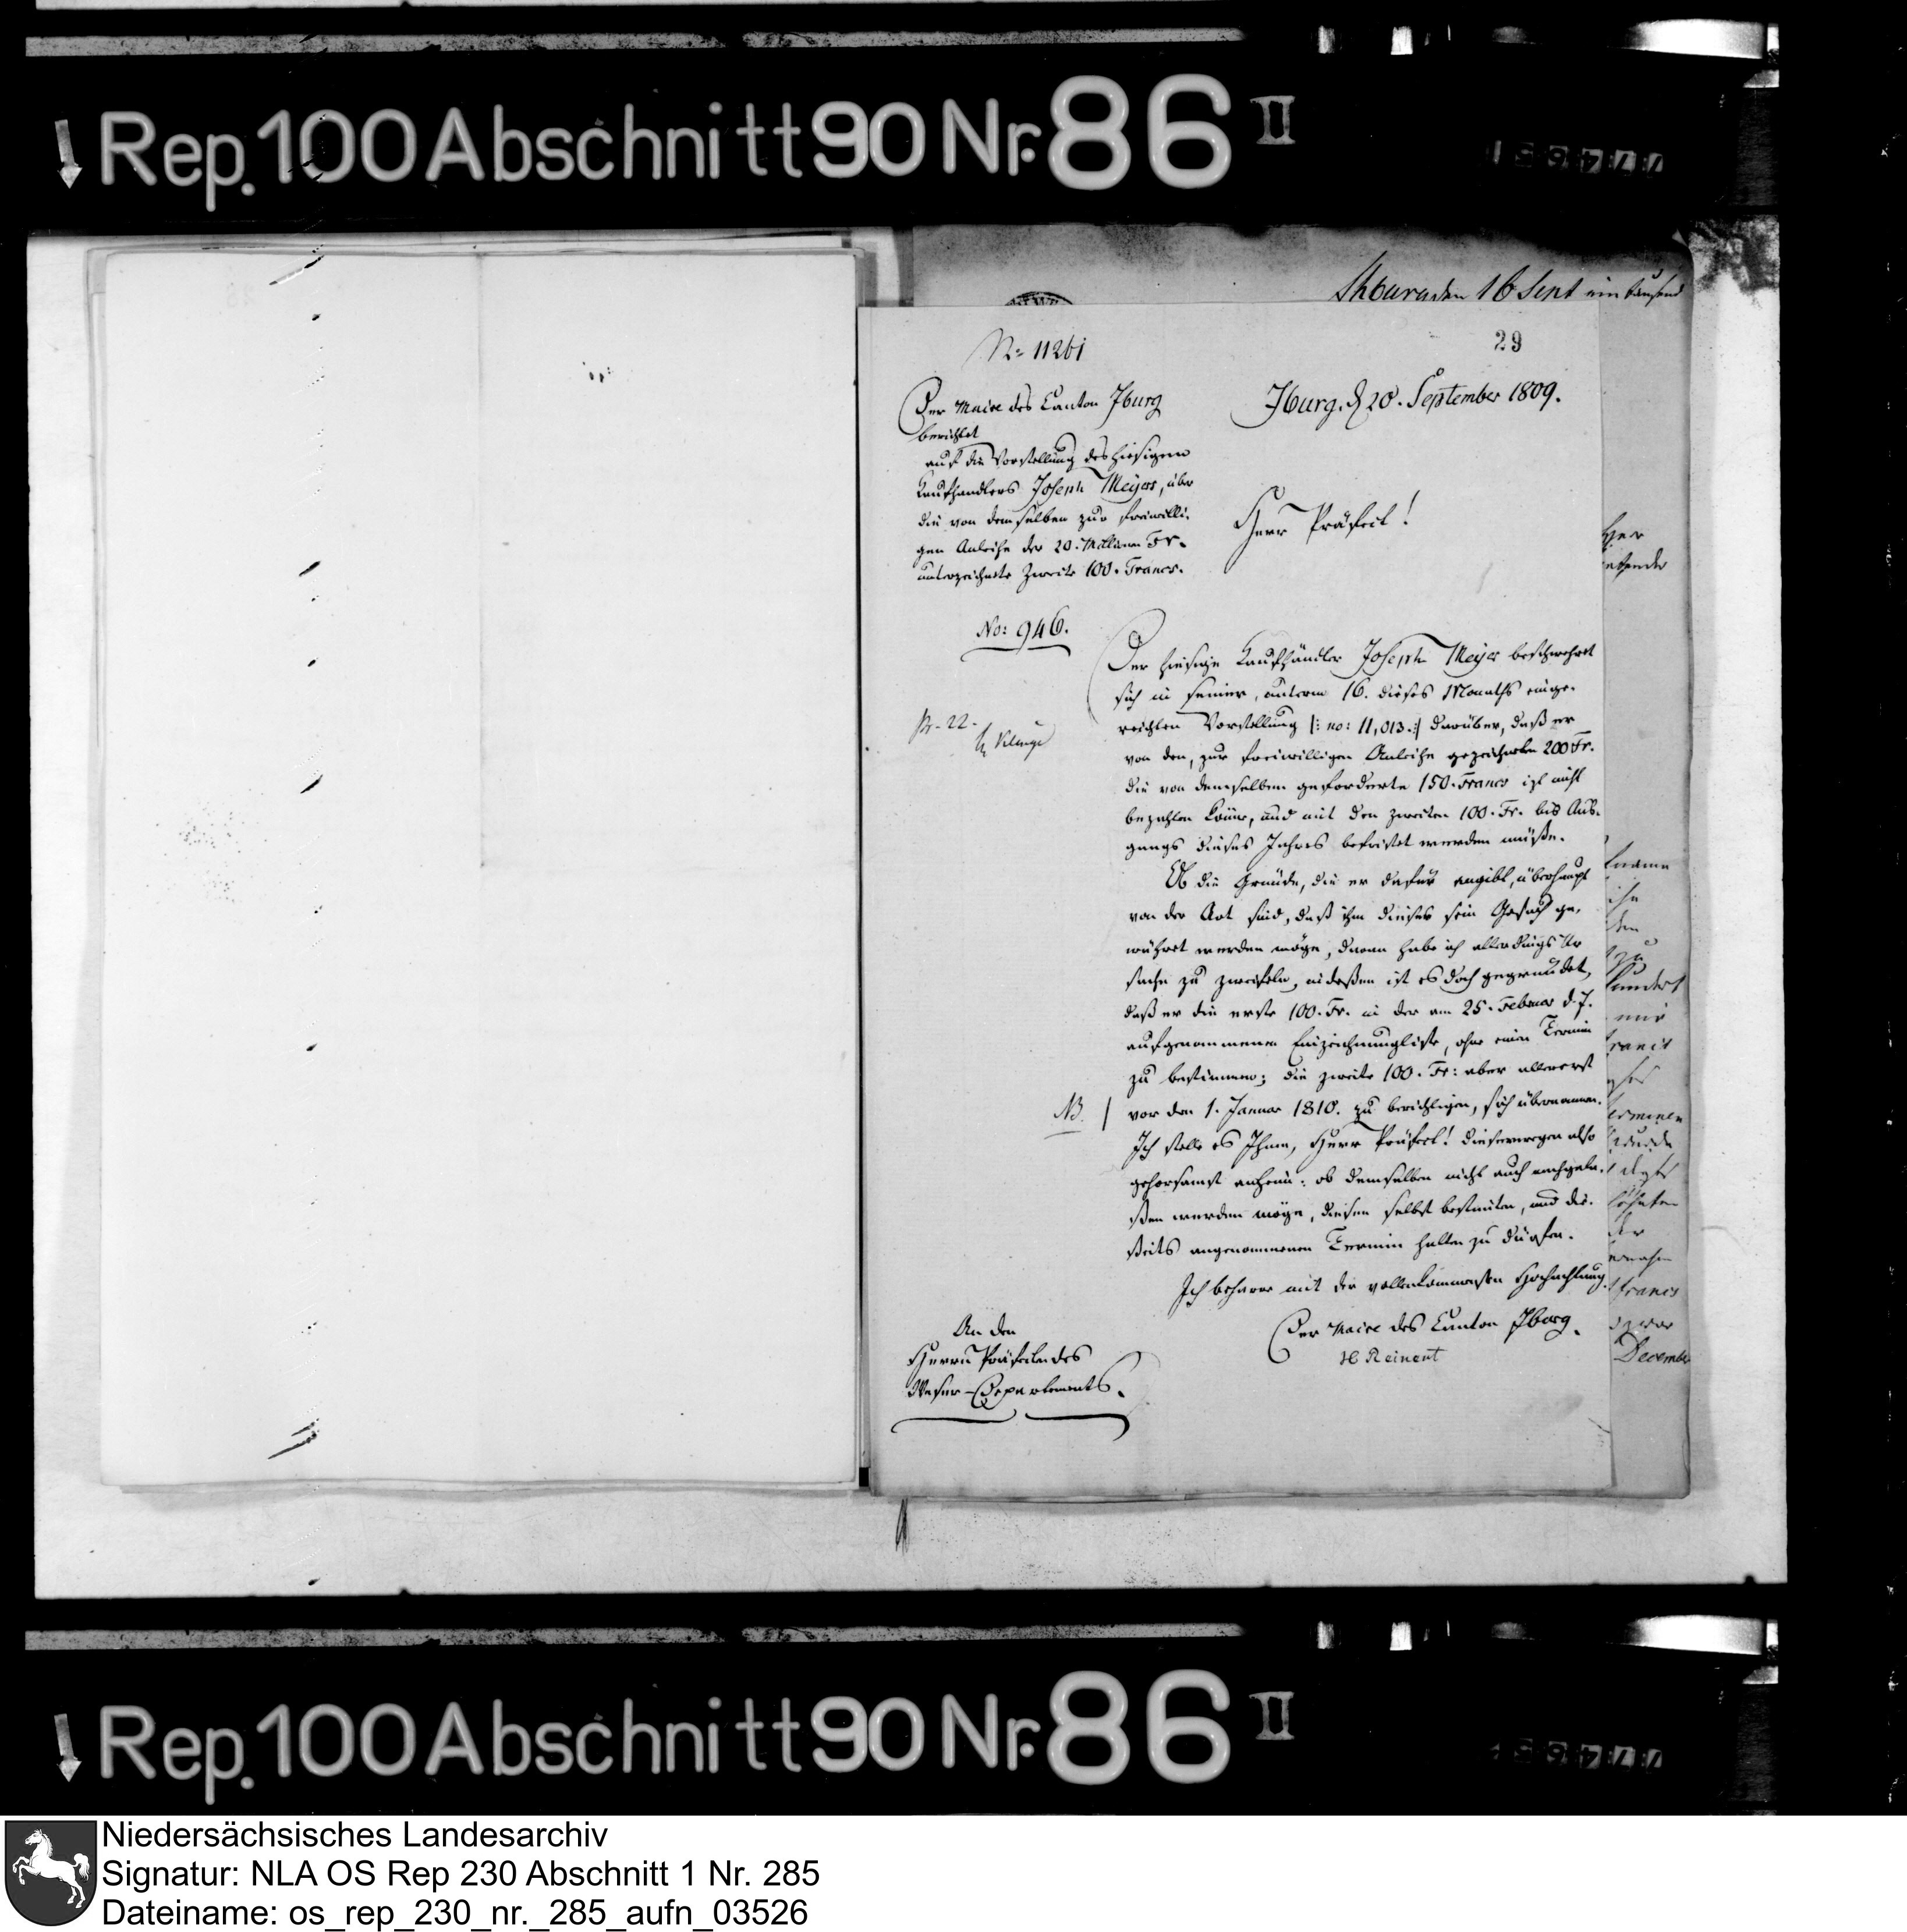 Rep. 100 Abschnitt 90 Nr. 86 II
Iburg den 16 Sept ein tausend
29
No 11261
Der Maire des Canton Iburg
berichtet
auf die Vorstellung des hiesigen
Kaufhändlers Joseph Meyer, über
die von demselben zur freiwilli-
gen Anleihe der 20. Millionen Fr.
unterzeichnete zweite 100. Francs.
No: 946.
Pr. 22.
Iburg, d 20. September 1809.
Herr Präfect!
Der hiesige Kaufhändler Joseph Meyer beschwehret
sich in seiner, unterm 16. dieses Monaths einge-
reichten Vorstellung |: no: 11,013 :| darüber, daß er
von den, zur freiwilligen Anleihe gezeichneten 200 Fr.
die von demselben geforderte 150. Francs izt nicht
bezahlen könne, und mit den zweiten 100. Fr. bis Aus-
gangs dieses Jahres befristet werden müße.
Ob die Gründe, die er dafür angibt, überhaupt
von der Art sind, daß ihm dieses sein Gesuch ge-
währet werden möge, daran habe ich allerdings Ur
sache zu zweifeln, indeßen ist es doch gegründet,
daß er die erste 100. Fr. in der am 25. Februar d. J.
aufgenommenen Einzeichnungliste, ohne einen Termin
zu bestimmen; die zweite 100. Fr: aber allererst
NB. | vor dem 1. Januar 1810. zu berichtigen, sich übernommen.
Ich stelle es Ihnen, Herr Präfect! dieserwegen also
gehorsamst anheim: ob demselben nicht auch nachgela-
ßen werden möge, diesen selbst bestimten, und dis-
seits angenommenen Termin halten zu dürfen.
Ich beharre mit der vollenkommensten Hochachtung.
Der Maire des Canton Iburg.
An den
Herrn Präfecten des
Weser-Departements.
hundert
mir
Terminen
wurde
der
francs
December
Rep. 100 Abschnitt 90 Nr. 86 II
Niedersächsisches Landesarchiv
Signatur: NLA OS Rep 230 Abschnitt 1 Nr. 285
Dateiname: os_rep_230_nr._285_aufn_03526